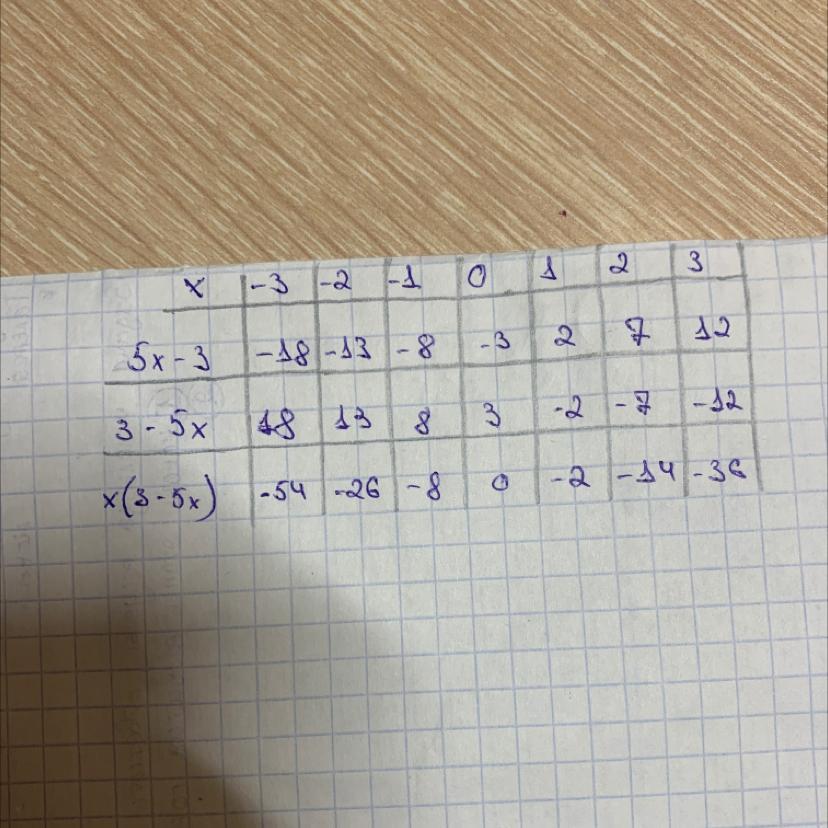 x -3 -2 -1 0 1 2 3
5x - 3 -18 -13 -8 -3 2 7 12
3 - 5x 18 13 8 3 -2 -7 -12
x(3 - 5x) -54 -26 -8 0 -2 -14 -36